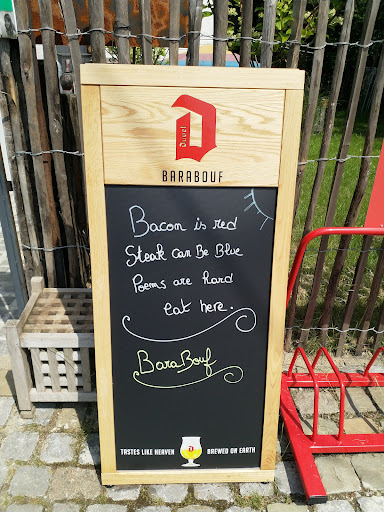 Duvel
BARABOUF
Bacon is red
Steak can Be Blue
Poems are hard
eat here.
BaraBouf
TASTES LIKE HEAVEN BREWED ON EARTH